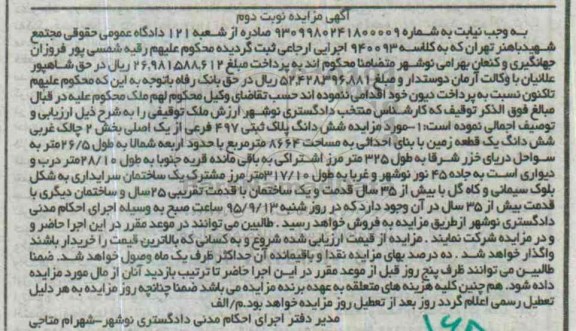 آگهی مزایده نوبت دوم
به وجب نیابت به شماره ۹۳۰۹۹۸۰۲۴۱۸۰۰۰۰۹ صادره از شعبه ۱۲۱ دادگاه عمومی حقوقی مجتمع
شهیدباهنر تهران که به کلاسه ۹۴۰۰۹۳ اجرایی ارجاعی ثبت گردیده محکوم علیهم رقیه شمسی پور فروزان
جهانگیری و کنعان بهرامی نوشهر متضامنا محکوم اند به پرداخت مبلغ ۲۶,۹۸۱,۵۸۸,۶۱۲ ریال در حق شاهپور
علائیان با وکالت آرمان دوستدار و مبلغ ۵۲,۴۲۸,۳۹۶,۸۸۱ ریال در حق بانک رفاه باتوجه به این که محکوم علیهم
تاکنون نسبت به پرداخت دیون خود اقدامی ننموده اند حسب تقاضای وکیل محکوم لهم ملک محکوم علیه در قبال
مبالغ فوق الذکر توقیف که کارشناس منتخب دادگستری نوشهر ارزش ملک توقیفی را به شرح ذیل ارزیابی و
توصیف اجمالی نموده است: ۱-مورد مزایده شش دانگ پلاک ثبتی ۴۹۷ فرعی از یک اصلی بخش ۲ چالک غربی
شش دانگ یک قطعه زمین با بنای احداثی به مساحت ۸۶۶۴ مترمربع با حدود اربعه شمالا به طول ۲۶/۵متر به
سواحل دریای خزر شرقا به طول ۳۲۵ متر مرز اشتراکی به باقی مانده قریه جنوبا به طول ۲۸/۱۰متر درب و
دیواری است به جاده ۴۵ نور نوشهر و غربا به طول ۳۱۷/۱۰متر مرز مشترک یک ساختمان سرایداری به شکل
بلوک سیمانی و کاه گل با بیش از ۳۵ سال قدمت و یک ساختمان با قدمت تقریبی ۲۵سال و ساختمان دیگری با
قدمت بیش از ۳۵ سال در آن وجود دارد که در روز شنبه ۹۵/۹/۱۳ ساعت صبح به وسیله اجرای احکام مدنی
دادگستری نوشهر ازطریق مزایده به فروش خواهد رسید . طالبین می توانند در موعد مقرر در این اجرا حاضر و
و در مزایده شرکت نمایند . مزایده از قیمت ارزیابی شده شروع و به کسانی که بالاترین قیمت را خریدار باشند
واگذار خواهد شد . ده درصد بهای مزایده نقدا و باقیمانده آن حداکثر ظرف یک ماه وصول خواهد شد. ضمنا
طالبین می توانند ظرف پنج روز قبل از موعد مقرر در این اجرا حاضر تا ترتیب بازدید آنان از مال مورد مزایده
داده شود. هم چنین کلیه هزینه های متعلقه به عهده برنده مزایده می باشد ضمنا چنانچه روز مزایده به هر دلیل
تعطیل رسمی اعلام گردد روز بعد از تعطیل روز مزایده خواهد بود.م/الف
مدیر دفتر اجرای احکام مدنی دادگستری نوشهر-شهرام متاجی